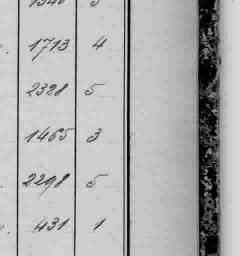 1713 4
2328 5
1465 3
2298 5
431 1